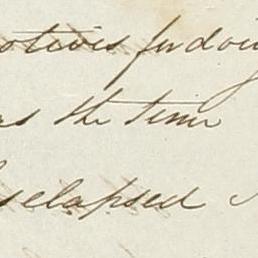 motives for doing
as the time
elapsed